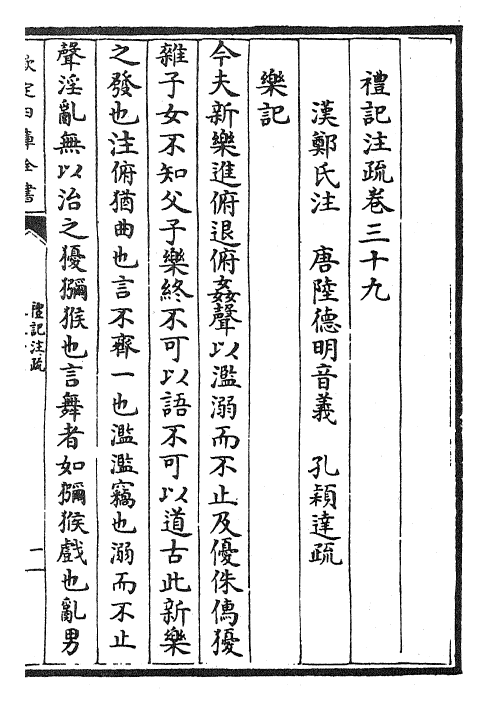 禮記注疏卷三十九
漢鄭氏注　唐陸德明音義　孔穎達疏
樂記
今夫新樂進俯退俯姦聲以濫溺而不止及優侏儒獶
雜子女不知父子樂終不可以語不可以道古此新樂
之發也注俯猶曲也言不齊一也濫濫竊也溺而不止
聲淫亂無以治之獶獼猴也言舞者如獼猴戲也亂男
欽定四庫全書
禮記注疏